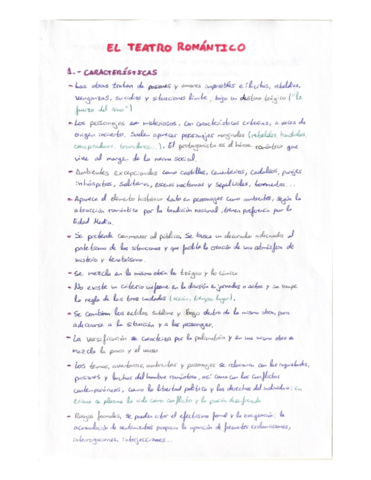 EL TEATRO ROMÁNTICO
1.- CARACTERÍSTICAS
- Las obras tratan de pasiones y amores imposibles e ilícitos, rebeldías,
venganzas, suicidios y situaciones límite, bajo un destino trágico ("la
fuerza del sino")
- Los personajes son misteriosos, con características externas, a veces de
origen incierto. Suelen aparecer personajes marginales (rebeldes, bandidos,
conspiradores, bandoleros...). El protagonista es el héroe romántico que
vive al margen de la norma social.
- Ambientes excepcionales como castillos, cementerios, castillos, parajes
inhóspitos, solitarios, escenas nocturnas y sepulcrales, tormentas...
- Aparece el elemento histórico tanto en personajes como ambientes, según la
atracción romántica por la tradición nacional, tienen preferencia por la
Edad Media.
- Se pretende conmover al público. Se busca un decorado adecuado al
patetismo de las situaciones y que posibilite la creación de una atmósfera de
misterio y
- Se mezcla en la misma obra lo trágico y lo cómico
- No existe un criterio uniforme en la división de jornadas o actos y se rompe
la regla de las tres unidades (acción, tiempo, lugar).
- Se combina los estilos sublime y dentro de la misma obra, para
adecuarse a la situación y a los personajes.
- La versificación se caracteriza por la polimetría y en una misma obra se
mezcla la prosa y el verso
- Los temas, aventuras, ambientes y personajes se relacionan con las inquietudes,
pasiones y luchas del hombre romántico, así como con los conflictos
contemporáneos, como la libertad política y los derechos del individuo. En
se plasma la vida como conflicto y la pasión desenfrenada
- Rasgos formales, se pueden citar el efectismo formal y la exageración: la
acumulación de sentimientos propicia la aparición de frecuentes exclamaciones,
interrogaciones, interjecciones...